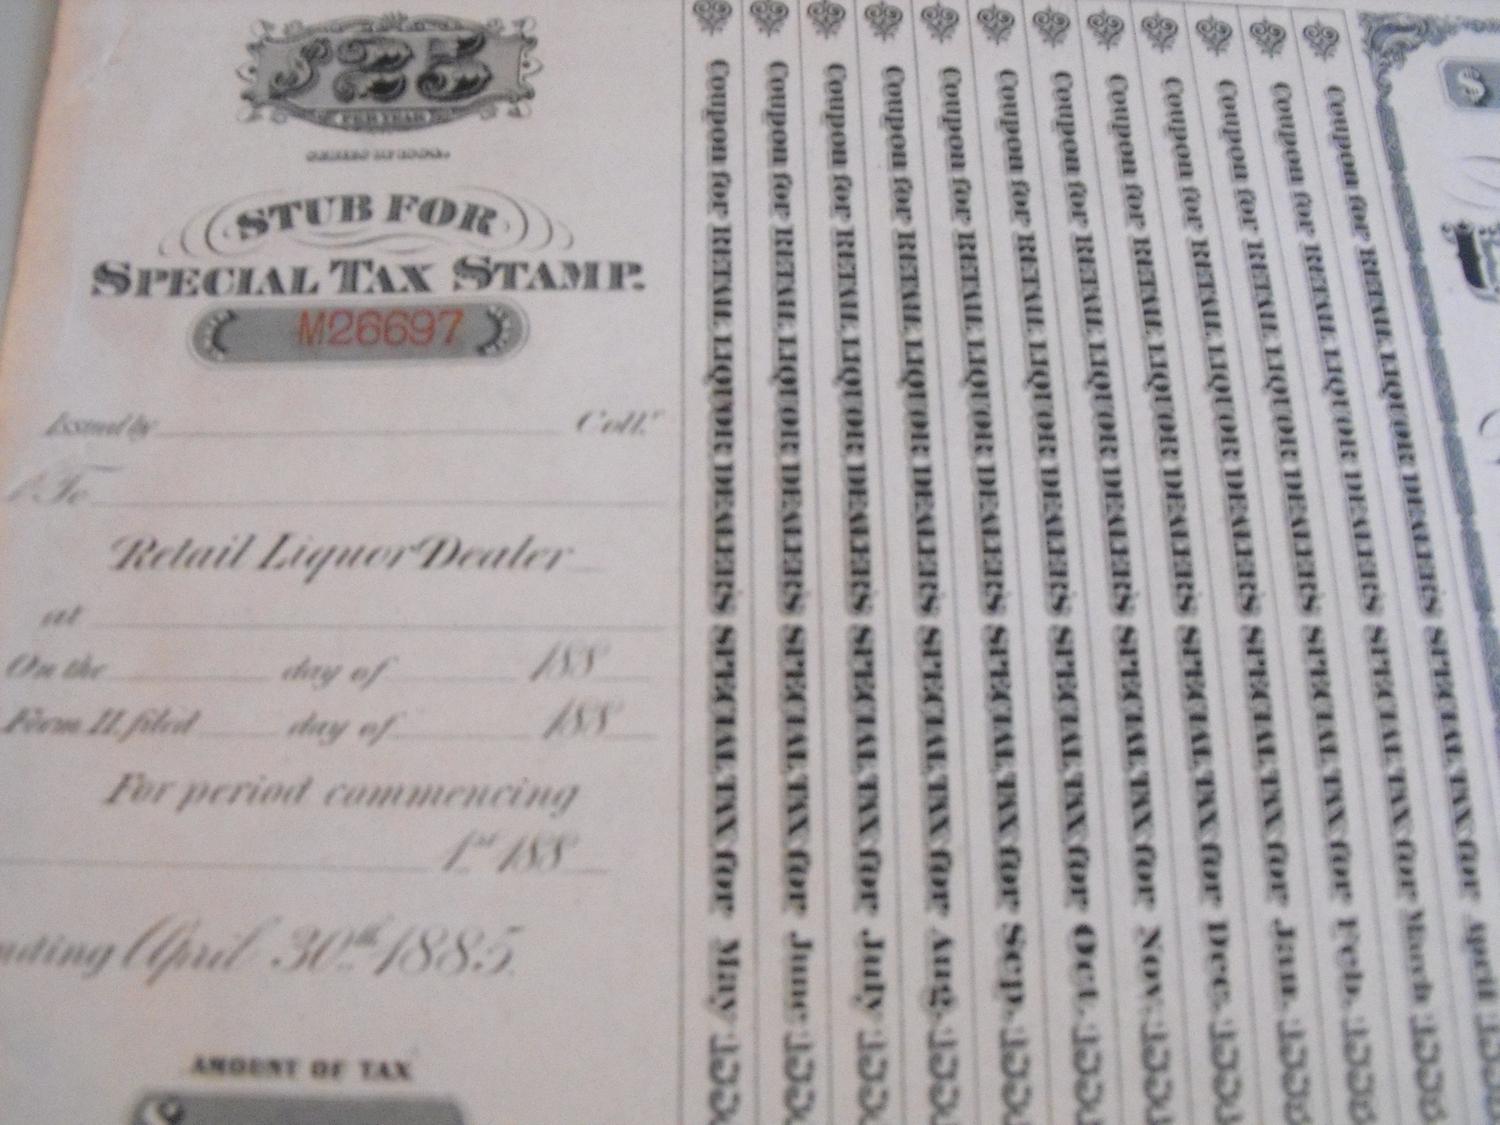 $25
PER YEAR
STUB FOR
SPECIAL TAX STAMP.
M26697
Issued by Coll.r
To
Retail Liquor Dealer
at
On the day of 188
Form 11. filed day of 188
For period commencing
1st 188
ending April 30th 1885.
AMOUNT OF TAX
Coupon for RETAIL LIQUOR DEALER'S SPECIAL TAX for May
Coupon for RETAIL LIQUOR DEALER'S SPECIAL TAX for June
Coupon for RETAIL LIQUOR DEALER'S SPECIAL TAX for July
Coupon for RETAIL LIQUOR DEALER'S SPECIAL TAX for Aug.
Coupon for RETAIL LIQUOR DEALER'S SPECIAL TAX for Sep.
Coupon for RETAIL LIQUOR DEALER'S SPECIAL TAX for Oct.
Coupon for RETAIL LIQUOR DEALER'S SPECIAL TAX for Nov.
Coupon for RETAIL LIQUOR DEALER'S SPECIAL TAX for Dec.
Coupon for RETAIL LIQUOR DEALER'S SPECIAL TAX for Jan.
Coupon for RETAIL LIQUOR DEALER'S SPECIAL TAX for Feb.
Coupon for RETAIL LIQUOR DEALER'S SPECIAL TAX for March
Coupon for RETAIL LIQUOR DEALER'S SPECIAL TAX for April
$